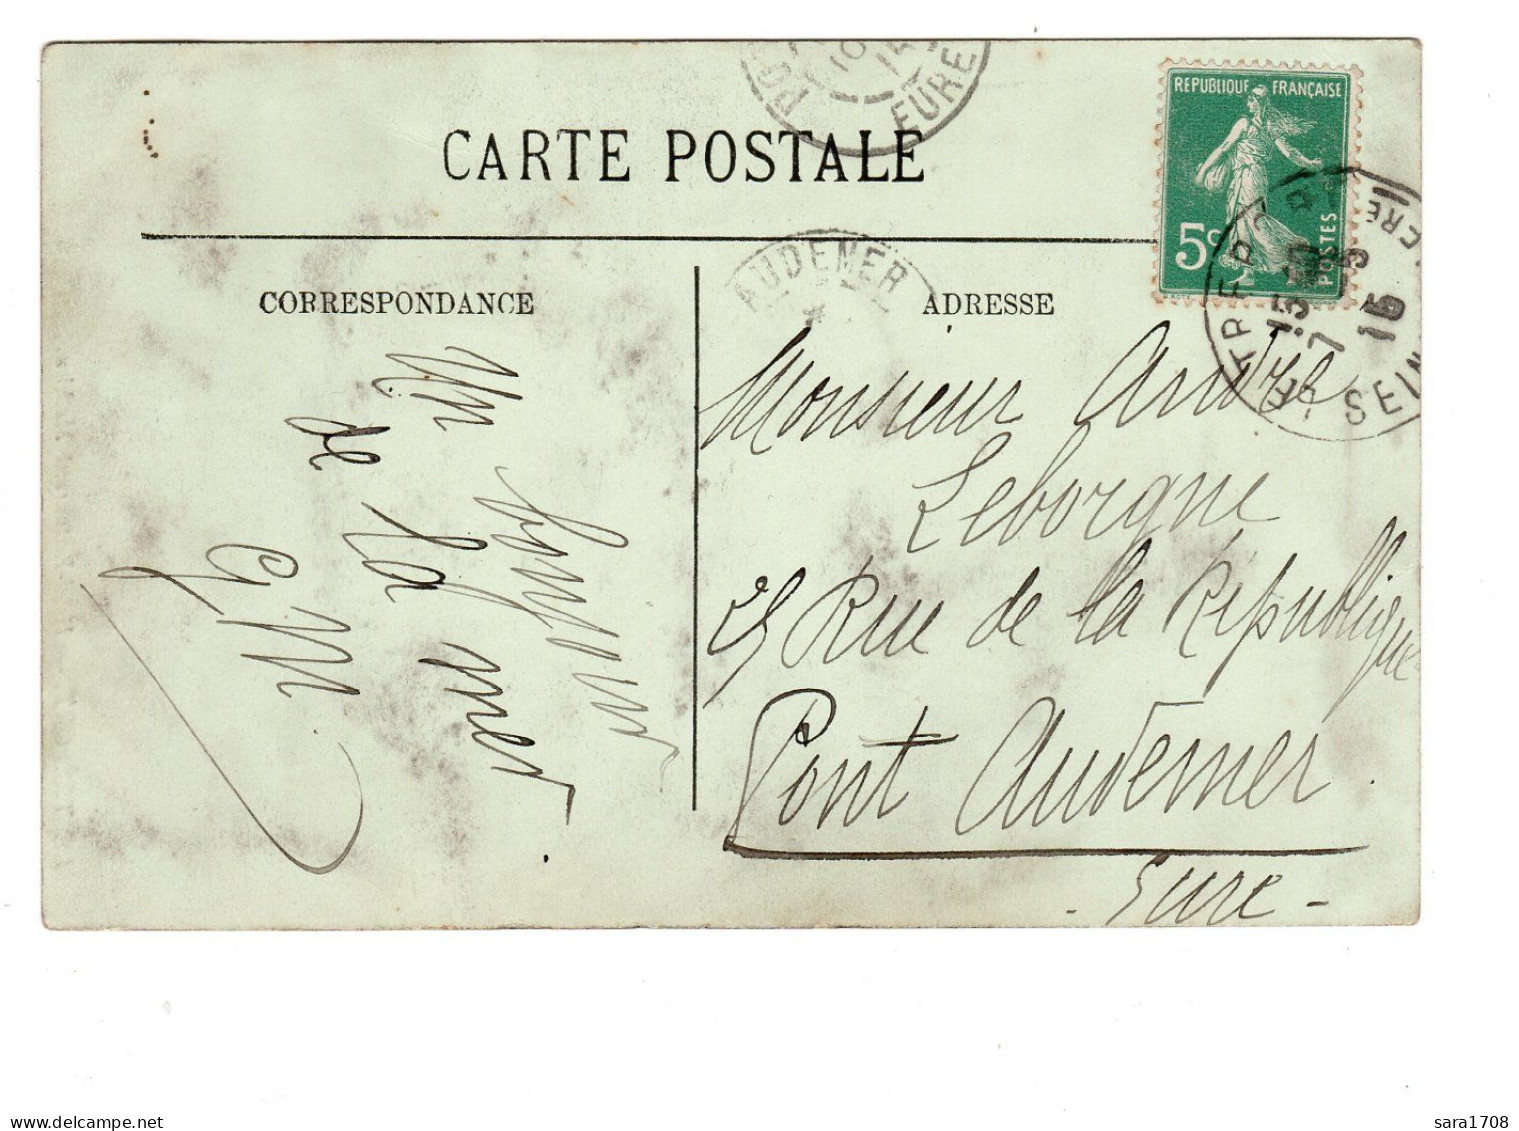 EURE
CARTE POSTALE
REPUBLIQUE FRANÇAISE
5c
POSTES
AUDEMER
CORRESPONDANCE
ADRESSE
LE TREPORT
SEINE
15
Un bonjour
de la mer
GM
Monsieur André
Leborgne
25 Rue de la République
Pont Audemer
- Eure -
delcampe.net
sara1708